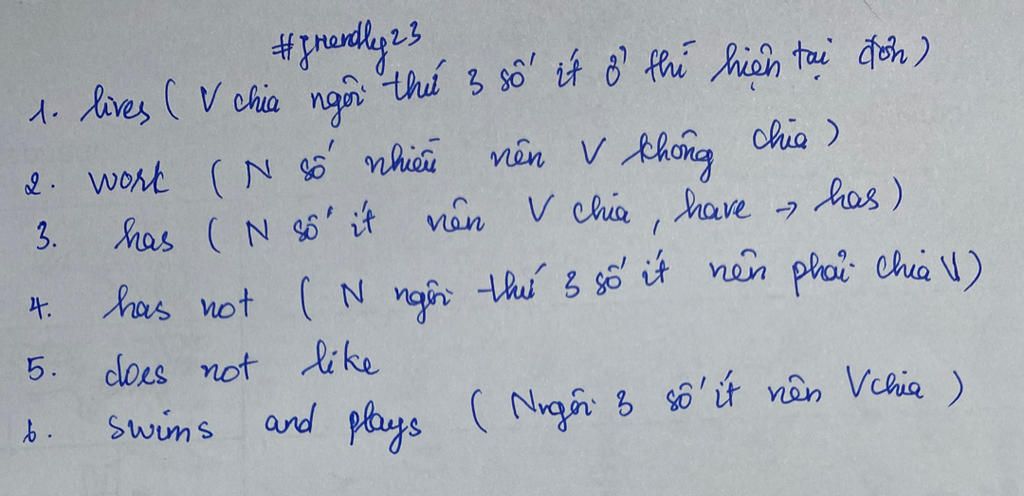 #friendly23
1. lives ( V chia ngôi thứ 3 số ít ở thì hiện tại đơn )
2. work ( N số nhiều nên V không chia )
3. has ( N số ít nên V chia, have → has )
4. has not ( N ngôi thứ 3 số ít nên phải chia V )
5. does not like
6. swims and plays ( N ngôi 3 số ít nên V chia )